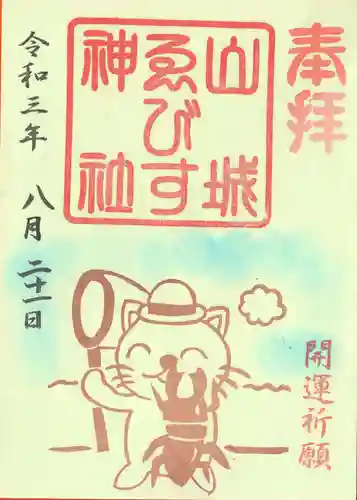 奉拝
山城
ゑびす
神社
開運祈願
令和三年 八月 二十一日